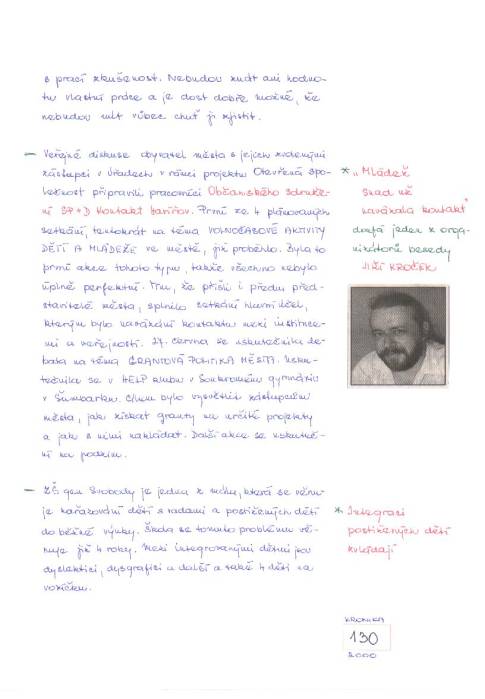 s prací zkušenost. Nebudou znát ani hodno-
tu vlastní práce a je dost dobře možné, že
nebudou mít vůbec chuť ji zjistit.
– Veřejné diskuse obyvatel města s jejich zvolenými
zástupci v úřadech v rámci projektu Otevřená spo-
lečnost připravili pracovníci Občanského sdruže-
ní SP+D Kontakt Havířov. První ze 4 plánovaných
setkání, tentokrát na téma VOLNOČASOVÉ AKTIVITY
DĚTÍ A MLÁDEŽE ve městě, již proběhlo. Byla to
první akce tohoto typu, takže všechno nebylo
úplně perfektní. Tím, že přišli i přední před-
stavitelé města, splnilo setkání hlavní účel,
kterým bylo navázání kontaktu mezi instituce-
mi a veřejností. 27. června se uskutečnila de-
bata na téma GRANTOVÁ POLITIKA MĚSTA. Usku-
tečnila se v HELP klubu v Soukromém gymnáziu
v Šumbarku. Cílem bylo vysvětlit zástupcům
města, jak získat granty na určité projekty
a jak s nimi nakládat. Další akce se uskuteč-
ní na podzim.
* „Mládež
snad už
navázala kontakt"
doufá jeden z orga-
nizátorů besedy
JIŘÍ KROČEK
– ZŠ gen. Svobody je jedna z mála, která se věnu-
je zařazování dětí s vadami a postižených dětí
do běžné výuky. Škola se tomuto problému vě-
nuje již 4 roky. Mezi integrovanými dětmi jsou
dyslektici, dysgrafici a další a také 4 děti na
vozíčku.
* Integraci
postižených dětí
zvládají
KRONIKA
130
2000